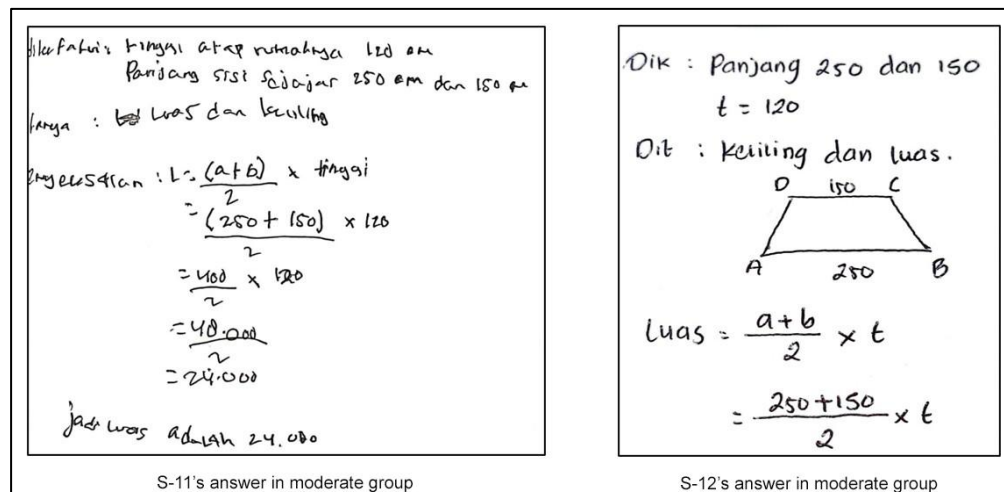 diketahui : tinggi atap rumahnya 120 cm
Panjang sisi sejajar 250 cm dan 150 cm
tanya : Luas dan keliling
: L = (a+b) / 2 × tinggi
= (250 + 150) / 2 × 120
= 400 / 2 × 120
= 48.000 / 2
= 24.000
jadi luas adalah 24.000
S-11's answer in moderate group
Dik : Panjang 250 dan 150
t = 120
Dit : Keliling dan luas.
D 150 C
A 250 B
Luas = a+b / 2 × t
= 250+150 / 2 × t
S-12's answer in moderate group